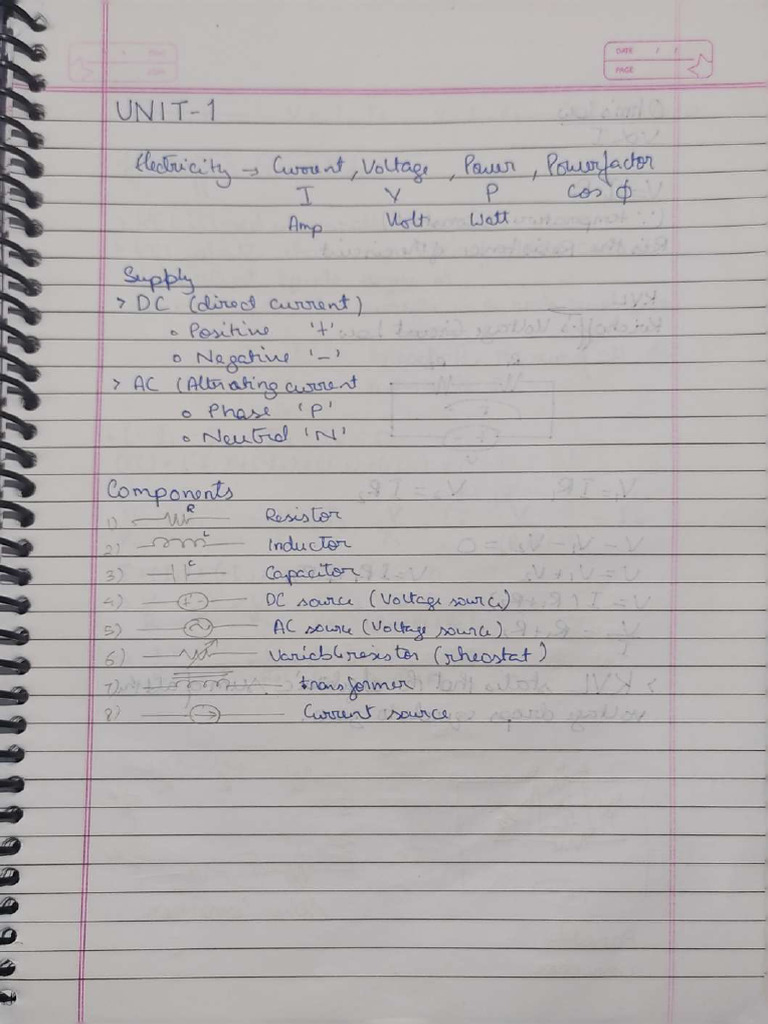 DATE / /
PAGE
UNIT-1
Electricity → Current, Voltage, Power, Powerfactor
I V P cos ϕ
Amp Volt Watt
Supply
> DC (direct current)
o Positive '+'
o Nagative '-'
> AC (Alterating current
o Phase 'P'
o Neutral 'N'
Components
1) R Resistor
2) L Inductor
3) C Capacitor
4) + - DC source (Voltage source)
5) AC source (Voltage source)
6) variable resistor (rheostat)
7) transformer
8) Current source